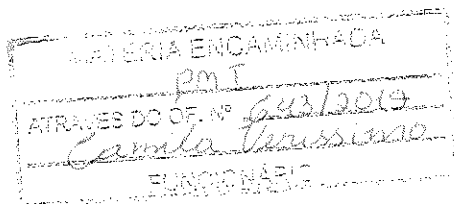 MATÉRIA ENCAMINHADA
PMT
ATRAVES DO OF. Nº 643/2019
Camila Verissimo
FUNCIONARIO